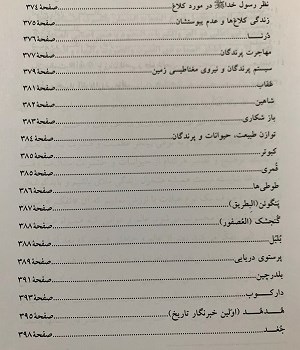 نظر رسول خداﷺ در مورد کلاغ..........صفحهٔ ۳۷۴
زندگی کلاغ‌ها و عدم پیوستشان..........صفحهٔ ۳۷۵
دُرنــا..........صفحهٔ ۳۷۶
مهاجرت پرندگان..........صفحهٔ ۳۷۷
سیستم پرندگان و نیروی مغناطیسی زمین..........صفحهٔ ۳۷۹
عقاب..........صفحهٔ ۳۸۱
شاهین..........صفحهٔ ۳۸۲
باز شکاری..........صفحهٔ ۳۸۳
توازن طبیعت، حیوانات و پرندگان..........صفحهٔ ۳۸۴
کبوتر..........صفحهٔ ۳۸۵
قُمری..........صفحهٔ ۳۸۵
طوطی‌ها..........صفحهٔ ۳۸۶
پنگوئن(البطریق)..........صفحهٔ ۳۸۷
گنجشک (العُصفور)..........صفحهٔ ۳۸۸
بُلبُل..........صفحهٔ ۳۸۸
پرستوی دریایی..........صفحهٔ ۳۸۹
بلدرچین..........صفحهٔ ۳۹۱
دارکــوب..........صفحهٔ ۳۹۳
هُـدهُـد (اوّلین خبرنگار تاریخ)..........صفحهٔ ۳۹۵
جُغـد..........صفحهٔ ۳۹۸